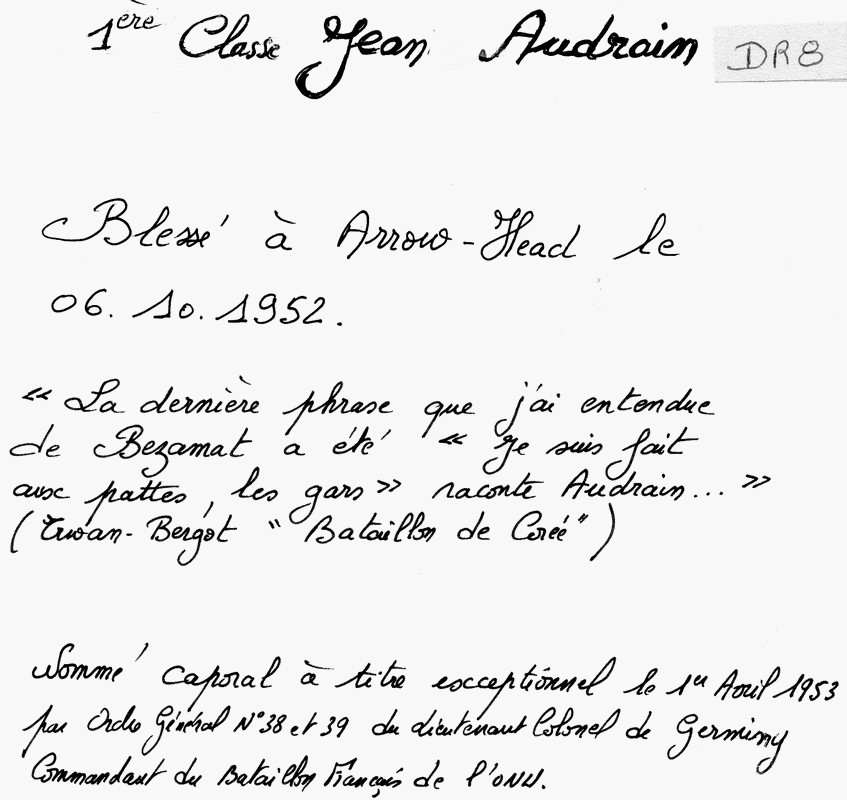 1ère Classe Jean Audrain DR8
Blessé à Arrow-Head le
06.10.1952.
« La dernière phrase que j'ai entendue
de Bezamat a été « Je suis fait
aux pattes, les gars » raconte Audrain... »
(Erwan-Bergot " Bataillon de Corée")
Nommé Caporal à titre exceptionnel le 1er Avril 1953
par Ordre Général N°38 et 39 du Lieutenant Colonel de Germiny
Commandant du Bataillon Français de l'ONU.